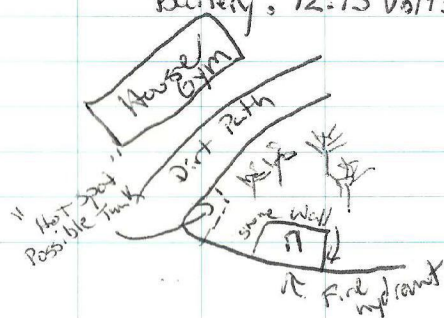 Battery: 12.75 Volts
House
Gym
Dirt Path
"Hot Spot"
Possible Tank
Stone Wall
Fire
Hydrant